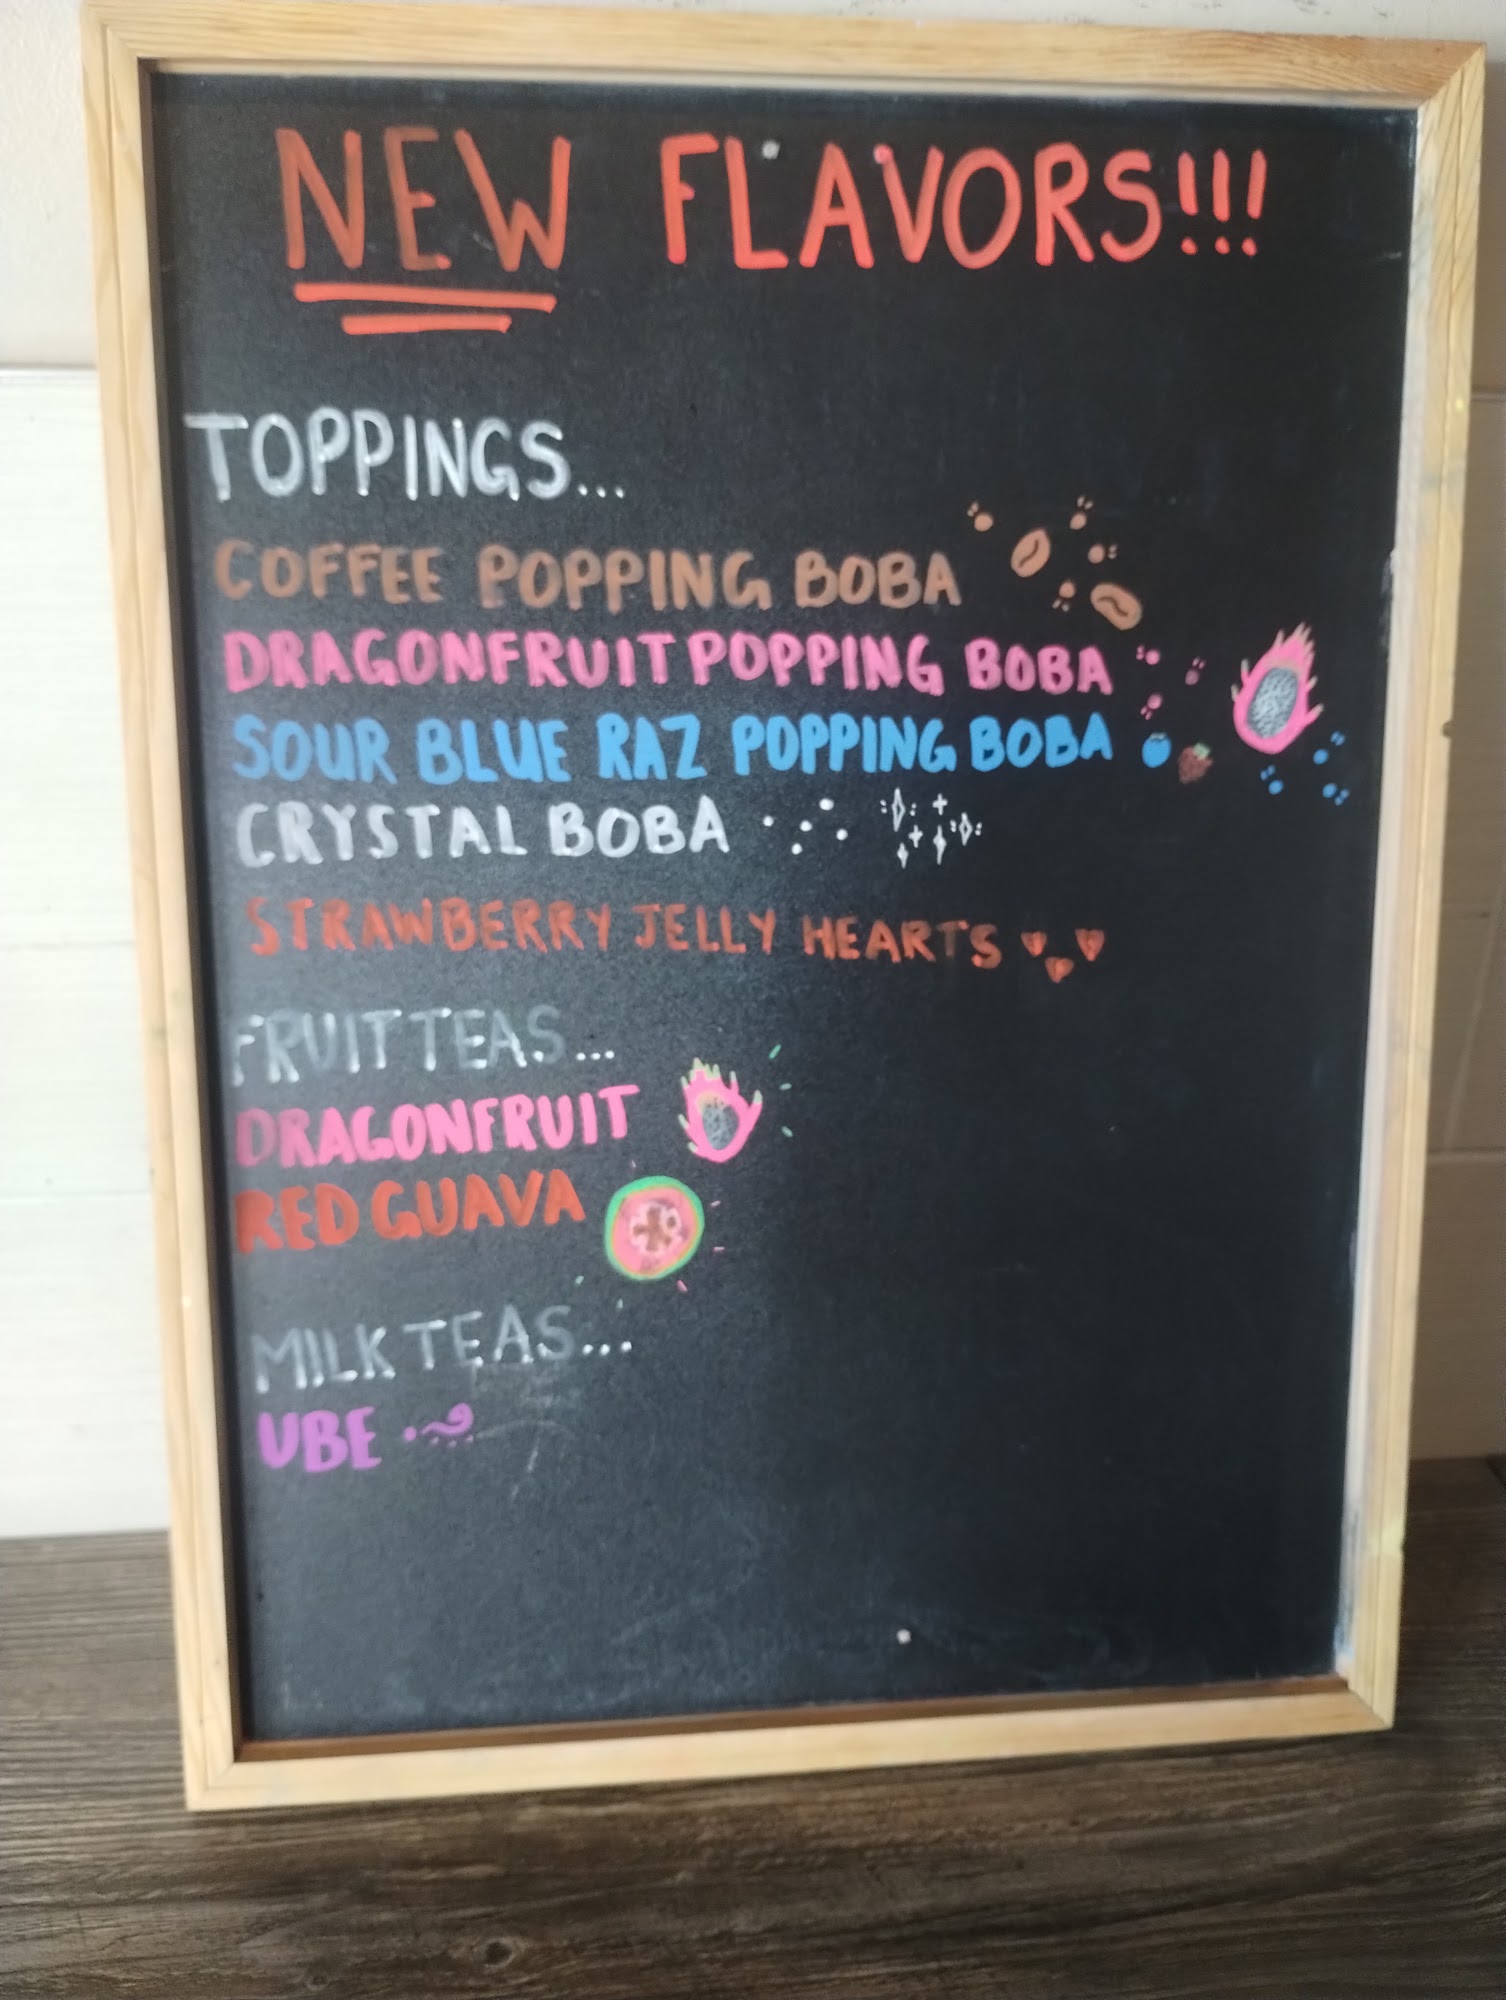 NEW FLAVORS!!!
TOPPINGS...
COFFEE POPPING BOBA
DRAGONFRUIT POPPING BOBA
SOUR BLUE RAZ POPPING BOBA
CRYSTAL BOBA
STRAWBERRY JELLY HEARTS
FRUIT TEAS...
DRAGONFRUIT
RED GUAVA
MILK TEAS...
UBE